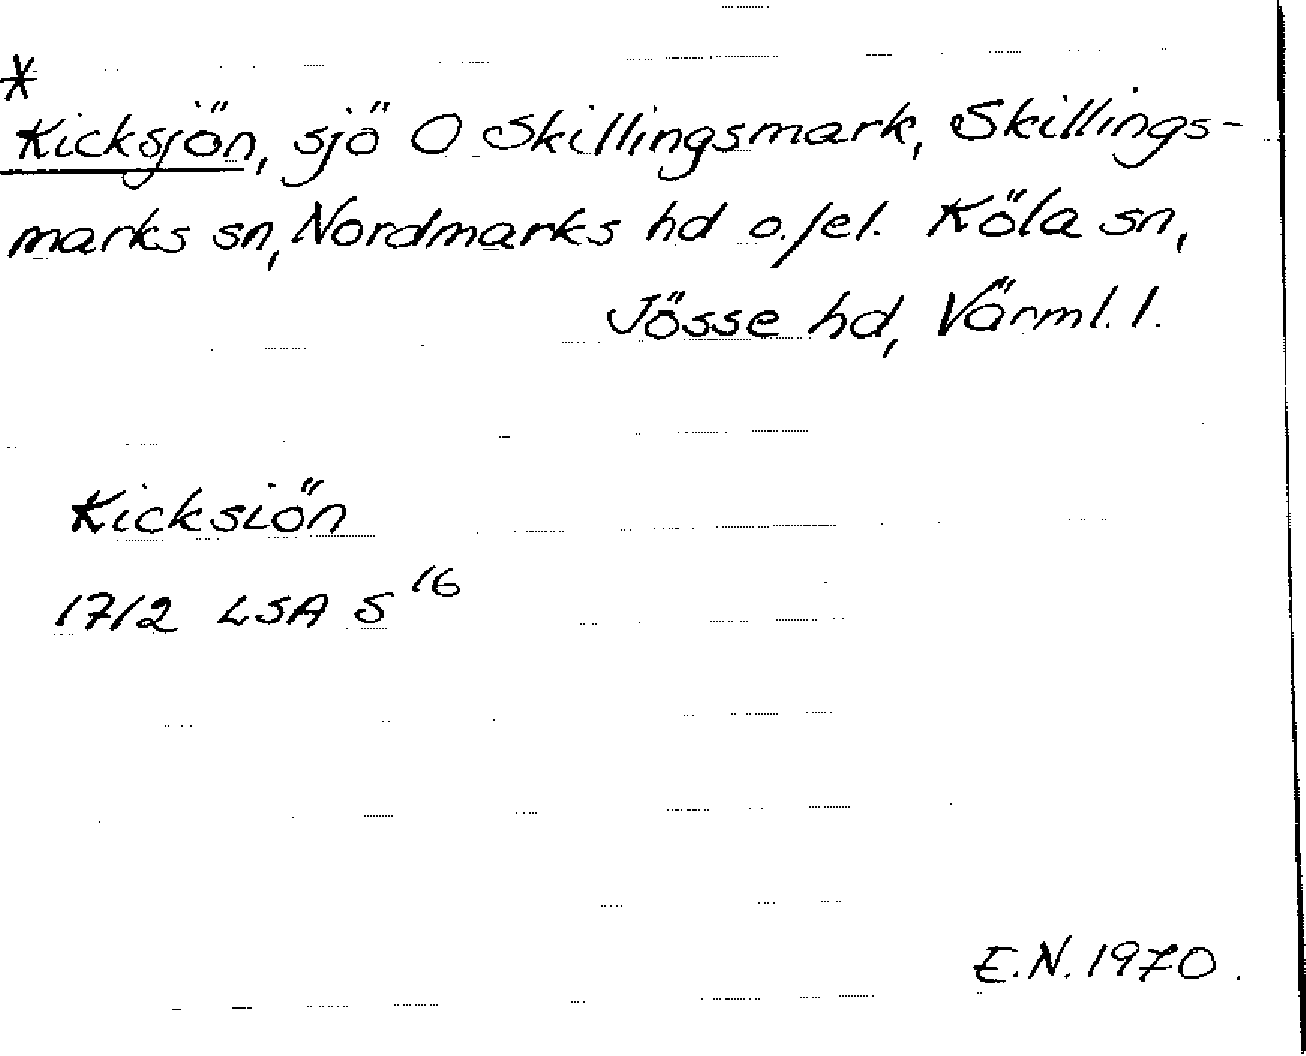 *
Kicksjön, sjö O Skillingsmark, Skillings-
marks sn, Nordmarks hd o./el. Köla sn,
Jösse hd, Värml. l.
Kicksiön
1712 LSA S 16
E.N. 1970.